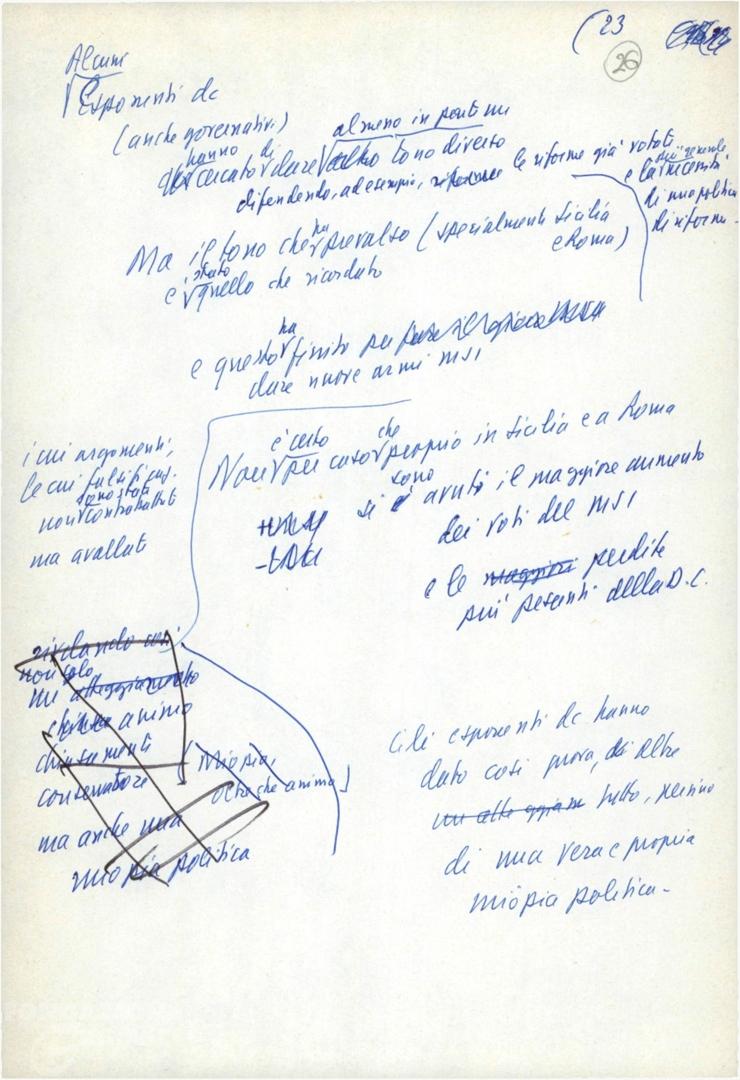 (23
26
Alcuni
Esponenti dc
(anche governativi)
almeno in parte un
hanno di
cercato dare tono diverso
difendendo, ad esempio, le riforme già votate
e la necessità
di una politica
di riforme -
Ma il tono che ha prevalso (specialmente Sicilia
e Roma)
è stato quello che ricordato
e questo ha finito per
dare nuove armi MSI
i cui argomenti,
le cui
sono stati
non controbattuti
ma avallati
è certo che
Non per caso proprio in Sicilia e a Roma
si sono avuti il maggiore aumento
dei voti del MSI
e le maggiori perdite
più pesanti della D.C.
rivelando così
non solo
un atteggiamento
animo
conservatore
(Miopia,
oltre che animo)
ma anche una
miopia politica
Gli esponenti dc hanno
dato così prova, di altre
tutto, persino
di una vera e propria
miopia politica -